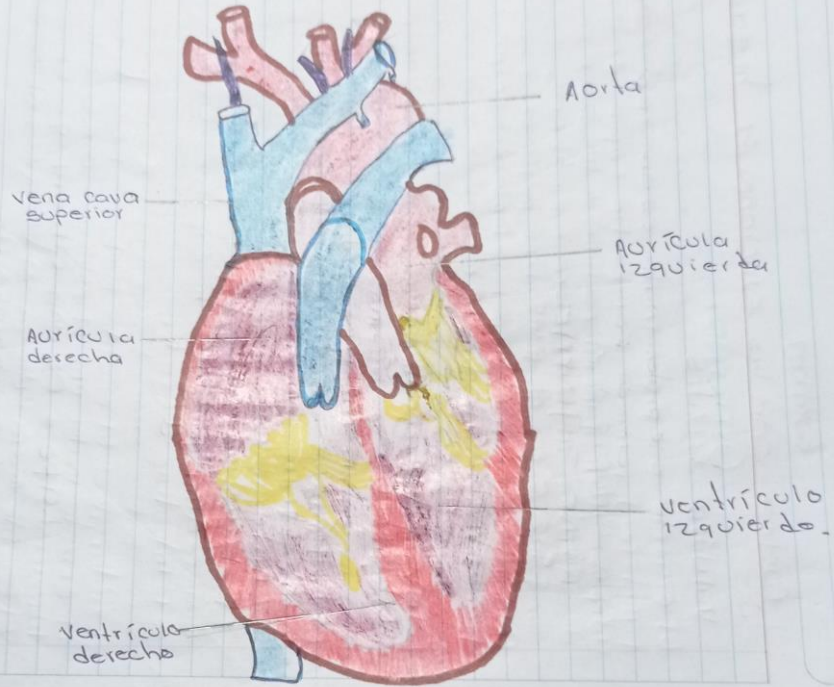 Aorta
vena cava
superior
Aurícula
izquierda
Aurícula
derecha
ventrículo
izquierdo.
ventrículo
derecho